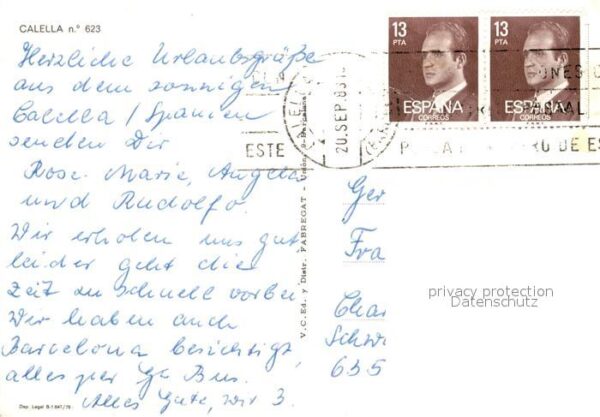 CALELLA n.° 623
Herzliche Urlaubsgrüße
aus dem sonnigen
Calella / Spanien
senden Dir
Rose Marie, Angela
und Rudolfo.
Wir erholen uns gut
leider geht die
Zeit zu schnell vorbei
Wir haben auch
Barcelona besichtigt,
alles per Bus.
Alles Gute, wir 3.
Dep. Legal B-1 647/76
V. C. Ed. y Distr. FABREGAT - Unión, 9-Barcelona
13
PTA
ESPAÑA
CORREOS
13
PTA
ESPAÑA
CORREOS
20. SEP 83
ESTE
DE ES
Ger
Fra
Char
Schwe
635
privacy protection
Datenschutz